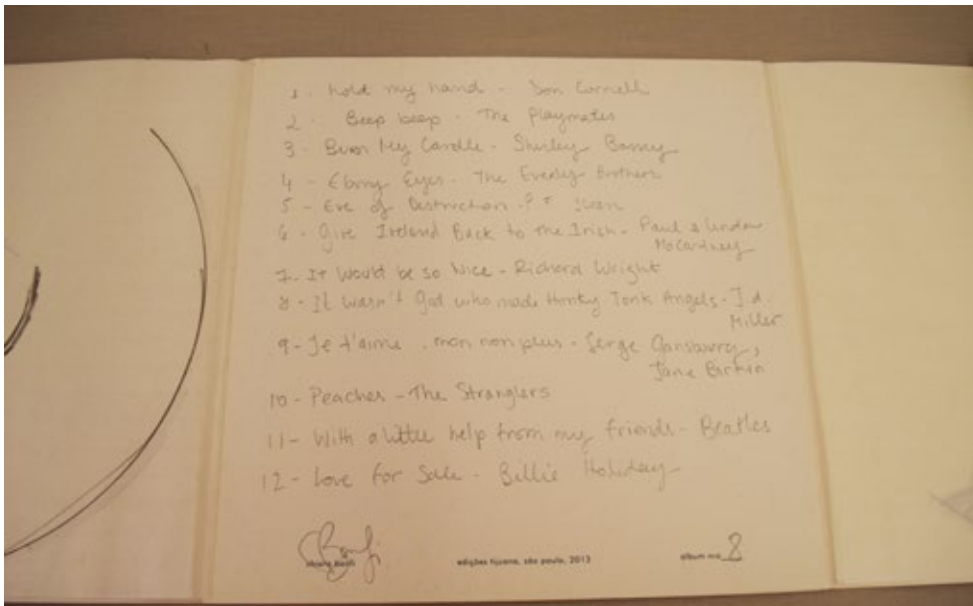 1. hold my hand - Don Cornell
2. Beep beep - The Playmates
3 - Burn My Candle - Shirley Bassey
4 - Ebony Eyes - The Everly Brothers
5 - Eve of Destruction - P F Sloan
6 - Give Ireland Back to the Irish - Paul e Linda
McCartney
7 - It Would be so Nice - Richard Wright
8 - It wasn't God who made Honky Tonk Angels - J.d.
Miller
9 - Je t'aime, mon non plus - Serge
Jane Birkin
10 - Peaches - The Stranglers
11 - With a little help from my friends - Beatles
12 - Love for Sale - Billie Holiday
edições tijuana, são paulo, 2013 album nro 8